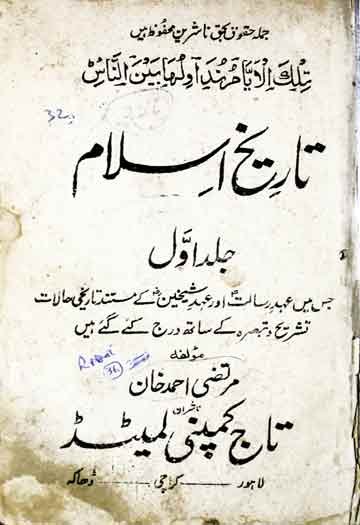 جملہ حقوق بحق ناشرین محفوظ ہیں
تِلْكَ الْاَيَّامُ نُدَاوِلُهَا بَيْنَ النَّاسِ
32
تاریخ اسلام
جلد اوّل
جس میں عہدِ رسالتؐ اور عہدِ شیخینؓ کے مستند تاریخی حالات
تشریح و تبصرہ کے ساتھ درج کئے گئے ہیں
مؤلفہ
مرتضیٰ احمد خان
ناشران
تاج کمپنی لمیٹڈ
لاہور — کراچی — ڈھاکہ